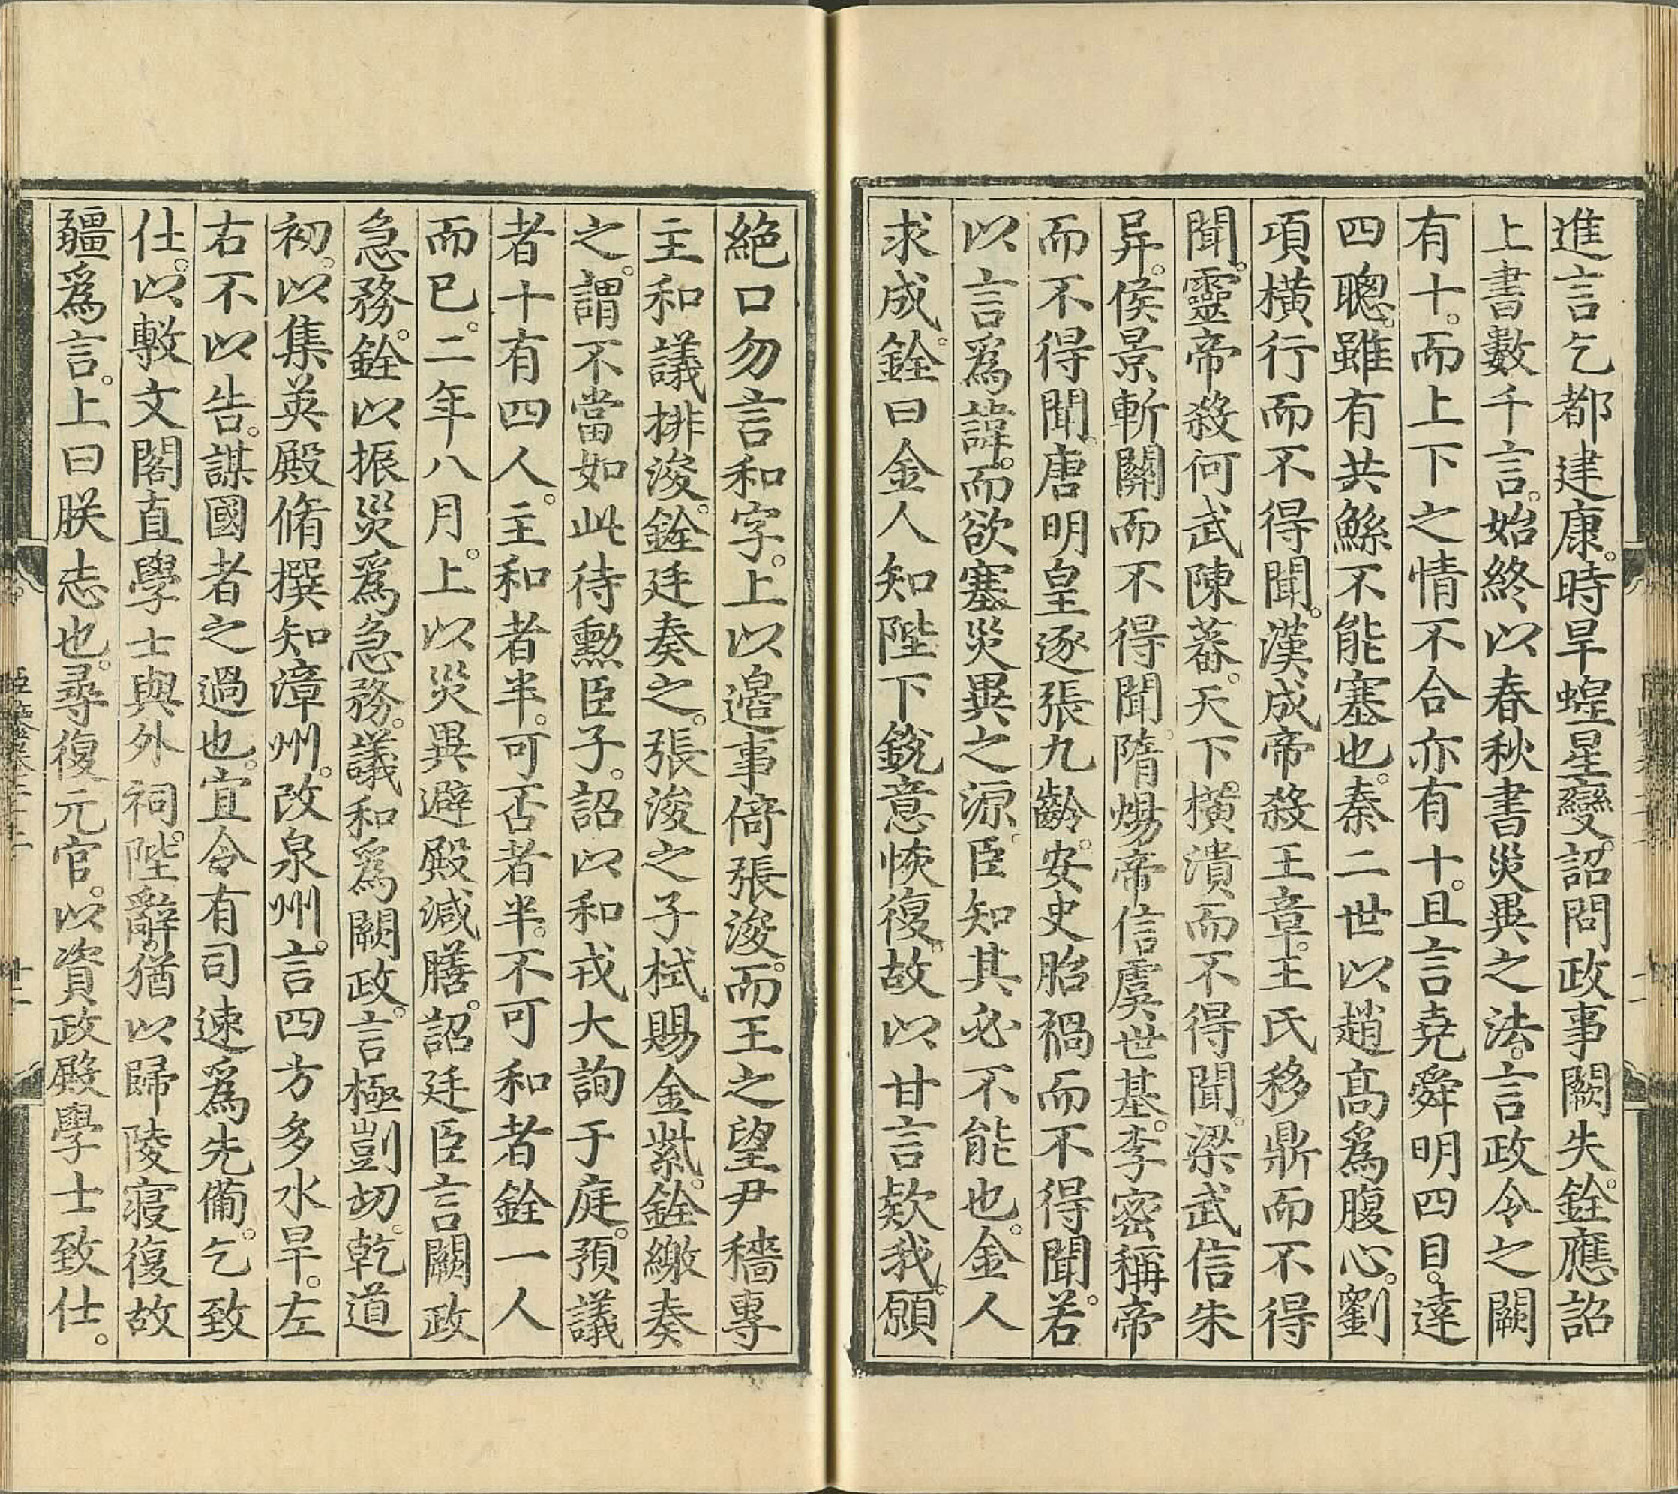 進言乞都建康。時旱蝗星變。詔問政事闕失。銓應詔
上書數千言。始終以春秋書災異之法。言政令之闕
有十。而上下之情不合亦有十。且言堯舜明四目。達
四聰。雖有共鯀不能塞也。秦二世以趙高爲腹心。劉
項橫行而不得聞。漢成帝殺王章。王氏移鼎而不得
聞。靈帝殺何武陳蕃。天下橫潰而不得聞。梁武信朱
异。侯景斬關而不得聞。隋煬帝信虞世基。李密稱帝
而不得聞。唐明皇逐張九齡。安史胎禍而不得聞。若
以言爲諱。而欲塞災異之源。臣知其必不能也。金人
求成。銓曰金人知陛下銳意恢復。故以甘言欵我。願
絕口勿言和字。上以邉事倚張浚。而王之望尹穡專
主和議排浚。銓廷奏之。張浚之子栻賜金紫。銓繳奏
之。謂不當如此待勲臣子。詔以和戎大詢于庭。預議
者十有四人。主和者半。可否者半。不可和者銓一人
而已。二年八月。上以災異避殿減膳。詔廷臣言闕政
急務。銓以振災爲急務。議和爲闕政。言極剴切。乾道
初。以集英殿脩撰知漳州。改泉州。言四方多水旱。左
右不以告。謀國者之過也。宜令有司速爲先備。乞致
仕。以敷文閣直學士與外祠。陛辭。猶以歸陵寢復故
疆爲言。上曰朕志也。尋復元官。以資政殿學士致仕。